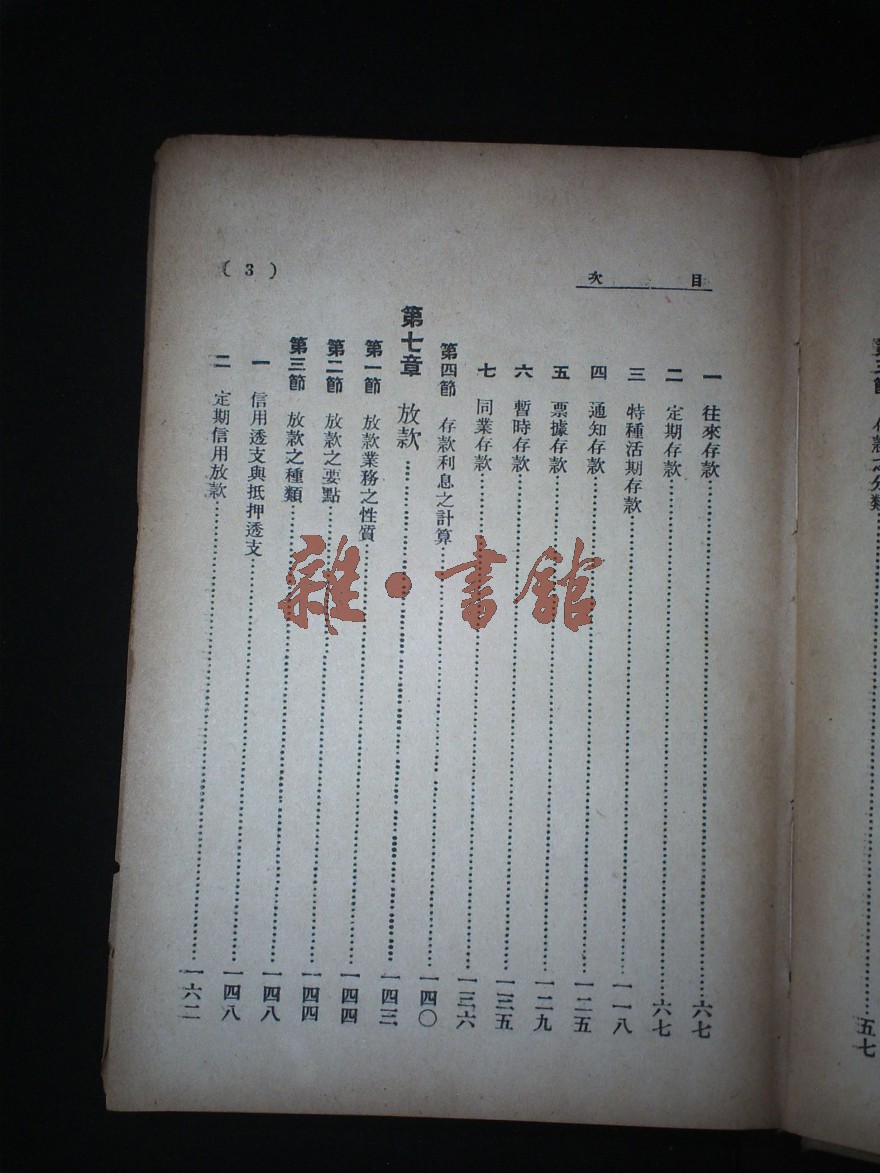 第三節 存款之分類……五七
目次
一 往來存款……六七
二 定期存款……六七
三 特種活期存款……一一八
四 通知存款……一二五
五 票據存款……一二九
六 暫時存款……一三五
七 同業存款……一三六
第四節 存款利息之計算……一四〇
第七章 放款……一四三
第一節 放款業務之性質……一四四
第二節 放款之要點……一四四
第三節 放款之種類……一四八
一 信用透支與抵押透支……一四八
二 定期信用放款……一六二
(3)
雜·書館